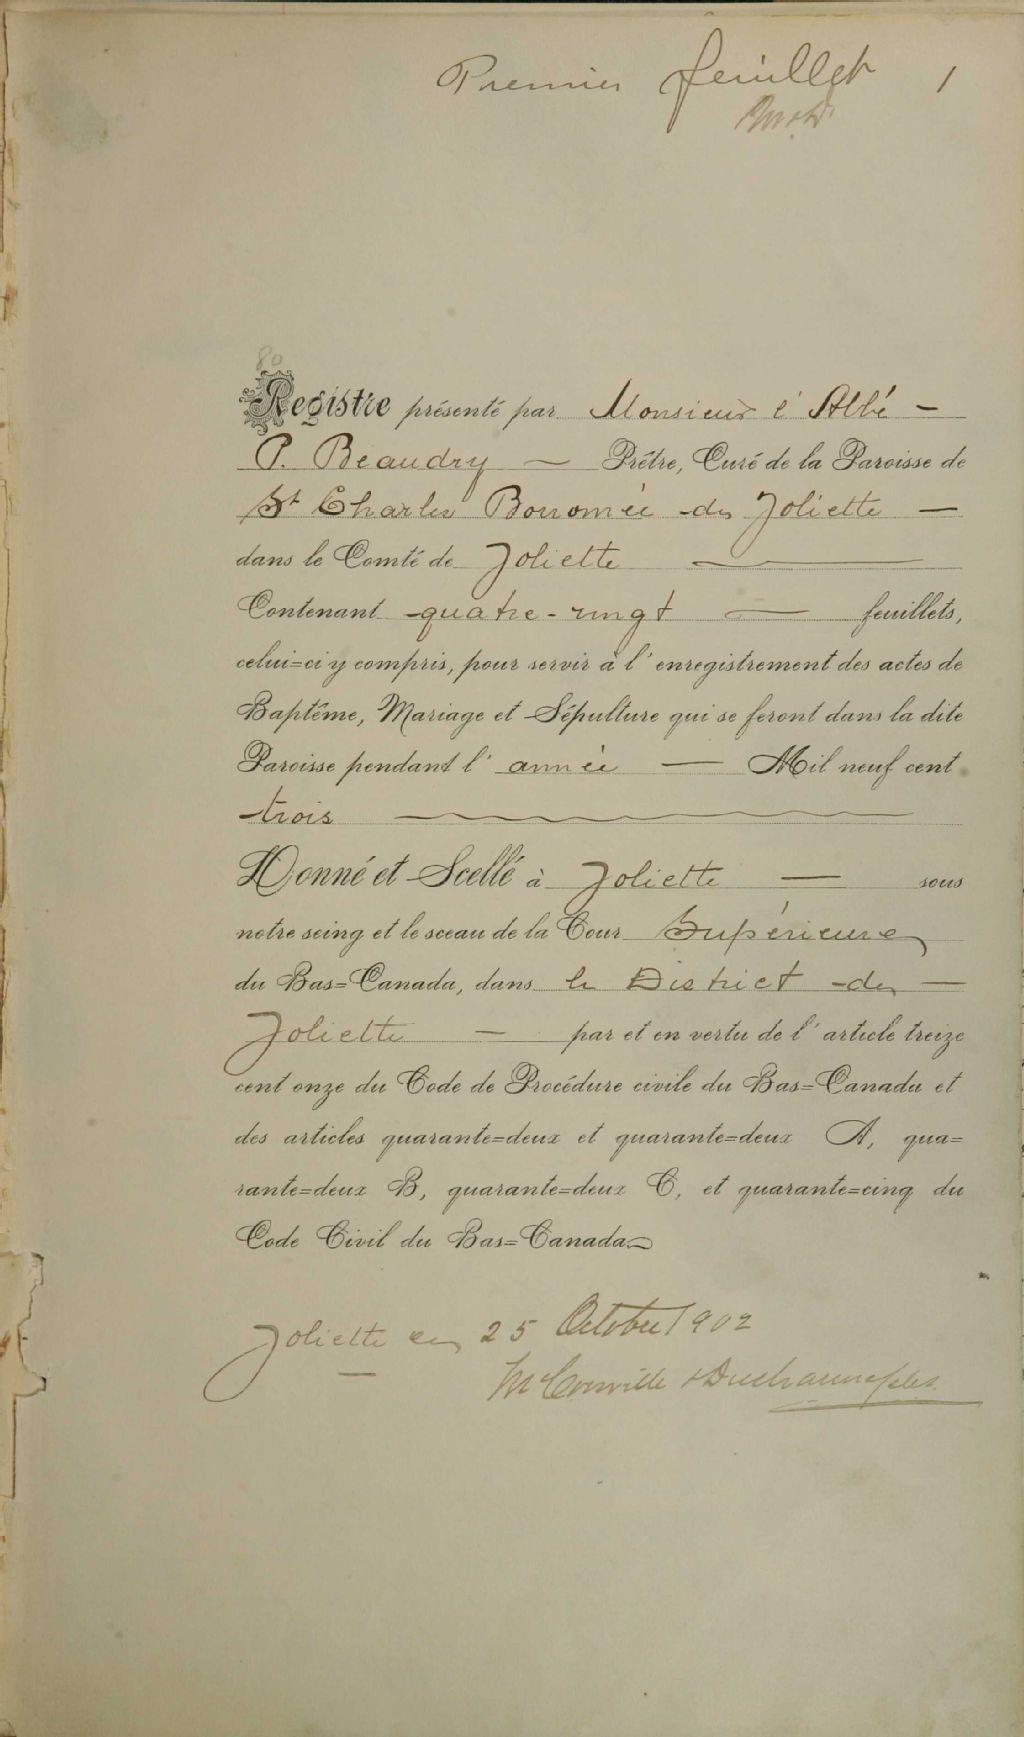 Premier feuillet 1
80
Registre présenté par Monsieur l'Abbé —
P. Beaudry — Prêtre, Curé de la Paroisse de
St Charles Borromée de Joliette —
dans le Comté de Joliette —
Contenant quatre-vingt — feuillets,
celui=ci y compris, pour servir à l'enregistrement des actes de
Baptême, Mariage et Sépulture qui se feront dans la dite
Paroisse pendant l'année — Mil neuf cent
trois —
Donné et Scellé à Joliette — sous
notre seing et le sceau de la Cour Supérieure
du Bas=Canada, dans le District de —
Joliette — par et en vertu de l'article treize
cent onze du Code de Procédure civile du Bas=Canada et
des articles quarante=deux et quarante=deux A, qua=
rante=deux B, quarante=deux C, et quarante=cinq du
Code Civil du Bas=Canada
Joliette ce 25 Octobre 1902
—
McConville & Desrchamps